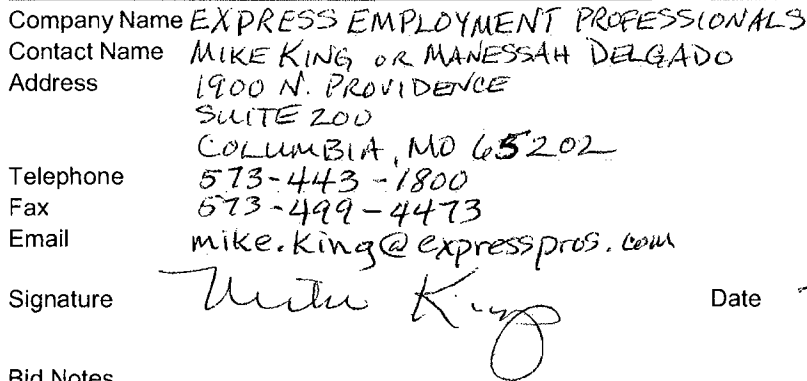 Company Name EXPRESS EMPLOYMENT PROFESSIONALS
Contact Name MIKE KING OR MANESSAH DELGADO
Address 1900 N. PROVIDENCE
SUITE 200
COLUMBIA, MO 65202
Telephone 573-443-1800
Fax 573-499-4473
Email mike.king@expresspros.com
Signature Mike King Date
Bid Notes